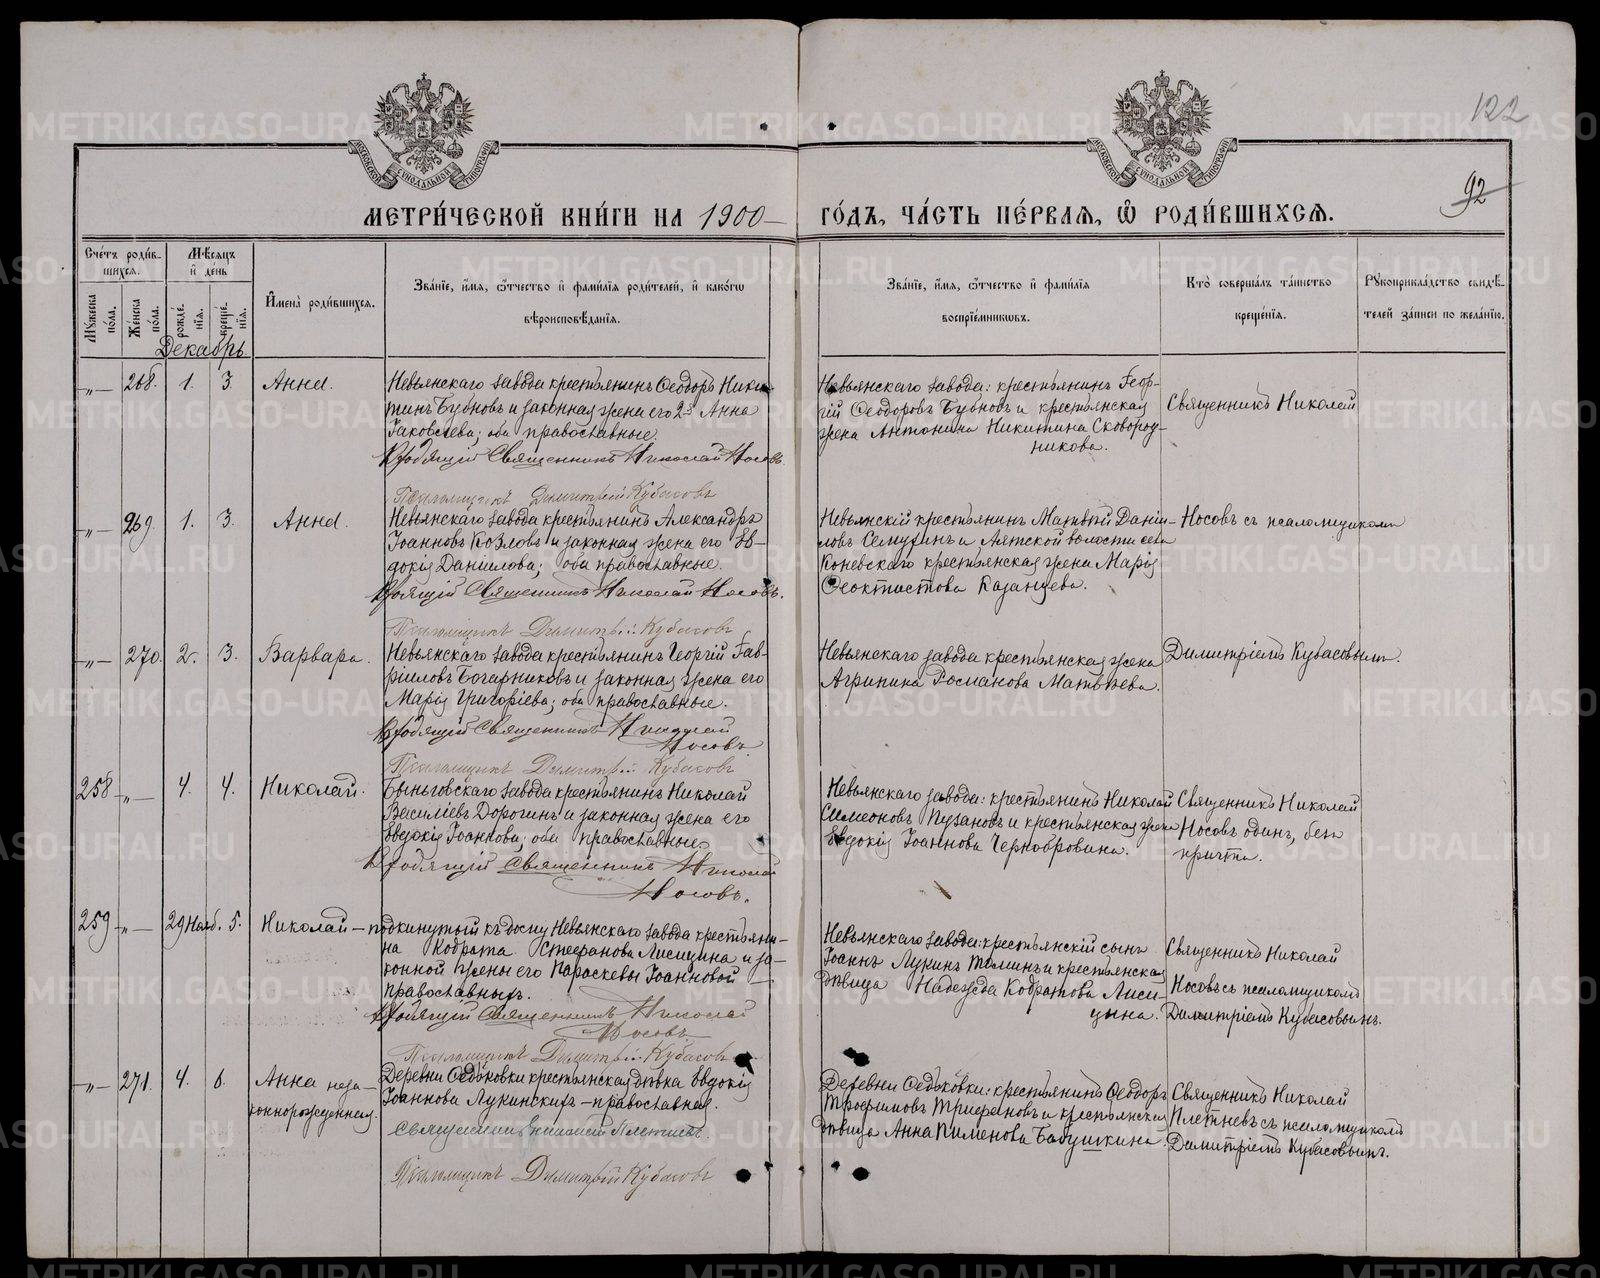 122
92
МЕТРИ́ЧЕСКОЙ КНИ́ГИ НА 1900 ГО́ДЪ, ЧА́СТЬ ПЕ́РВАЯ, Ѽ РОДИ́ВШИХСЯ.
Сче́тъ роди́в-
шихся.
Мѣ́сяцъ
и҆ де́нь
Мꙋ́жеска по́ла.
Же́нска по́ла.
рожде́нїя.
креще́нїя.
И҆мена̀ роди́вшихся.
Зва́нїе, и҆́мя, ѻ҆́тчество и҆ фами́лїя роди́телей, и҆ како́гѡ
вѣроисповѣ́данїя.
Зва́нїе, и҆́мя, ѻ҆́тчество и҆ фами́лїя
воспрїе́мникѡвъ.
Кто̀ соверша́лъ та́инство
креще́нїя.
Рꙋкоприкла́дство свидѣ́-
телей за́писи по жела́нїю.
Декабрь
–„– 268. 1. 3. Анна.
Невьянскаго завода крестьянинъ Ѳеодоръ Ники-
тинъ Бубновъ и законная жена его 2я Анна
Іаковлева; оба православные.
Приходящій Священникъ Николай Носовъ.
Псаломщикъ Димитрій Кубасовъ
Невьянскаго завода: крестьянинъ Геор-
гій Ѳеодоровъ Бубновъ и крестьянская
жена Антонина Никитина Сковород-
никова.
Священникъ Николай
–„– 269. 1. 3. Анна.
Невьянскаго завода крестьянинъ Александръ
Іоанновъ Козловъ и законная жена его Ев-
докія Даниилова; оба православные.
Священникъ Николай Носовъ.
Псаломщикъ Димитрій Кубасовъ
Невьянскій крестьянинъ Матвѣй Даніи-
ловъ Семухинъ и Аятской волости села
Коневскаго крестьянская жена Марія
Ѳеоктистова Казанцева.
Носовъ съ псаломщикомъ
–„– 270. 2. 3. Варвара.
Невьянскаго завода крестьянинъ Георгій Гав-
ріиловъ Богарниковъ и законная жена его
Марія Григоріева; оба православные.
Священникъ Николай
Носовъ
Псаломщикъ Димитрій Кубасовъ
Невьянскаго завода крестьянская жена
Агрипина Романова Матвѣева.
Димитріемъ Кубасовымъ.
258 –„– 4. 4. Николай.
Быньговскаго завода крестьянинъ Николай
Васильевъ Дорогинъ и законная жена его
Евдокія Іоаннова; оба православные.
Священникъ Николай
Носовъ.
Невьянскаго завода: крестьянинъ Николай
Симеоновъ Пузановъ и крестьянская жена
Евдокія Іоаннова Чернобровина.
Священникъ Николай
Носовъ одинъ, безъ
причта.
259 –„– 29 Нояб. 5. Николай – подкинутый къ дому Невьянскаго завода крестьяни-
на Кодрата Стефанова Лисицина и за-
конной жены его Параскевы Іоанновой –
православныхъ.
Священникъ Николай
Носовъ
Псаломщикъ Димитрій Кубасовъ
Невьянскаго завода: крестьянскій сынъ
Іоаннъ Лукинъ Томинъ и крестьянская
дѣвица Надежда Кодратова Лиси-
цына.
Священникъ Николай
Носовъ съ псаломщикомъ
Димитріемъ Кубасовымъ.
–„– 271. 4. 6. Анна неза-
коннорожденная.
Деревни Ѳедьковки крестьянская дѣвка Евдокія
Іоаннова Лукинскихъ – православная.
Священникъ Николай Плетневъ.
Псаломщикъ Димитрій Кубасовъ
Деревни Ѳедьковки: крестьянинъ Ѳеодоръ
Трофимовъ Трифановъ и крестьянская
дѣвица Анна Пименова Бабушкина.
Священникъ Николай
Плетневъ съ псаломщикомъ
Димитріемъ Кубасовымъ.
METRIKI.GASO-URAL.RU